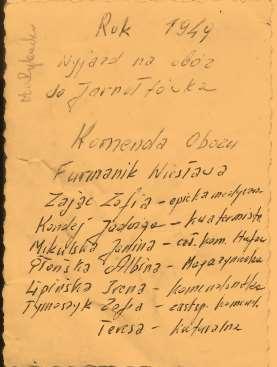 Rok 1949
Wyjazd na obóz
do Jarnołtówka
Komenda Obozu
Furmanik Wiesława
Zając Zofia - opieka medyczna
Kondej Jadwiga - kwatermistrz
Mikulska Janina - zast. kom. Hufca
Płońska Albina - Magazynierka
Lipińska Irena - komendantka
Tymoszyk Zofia - zastęp. komend.
Teresa - kulturalna